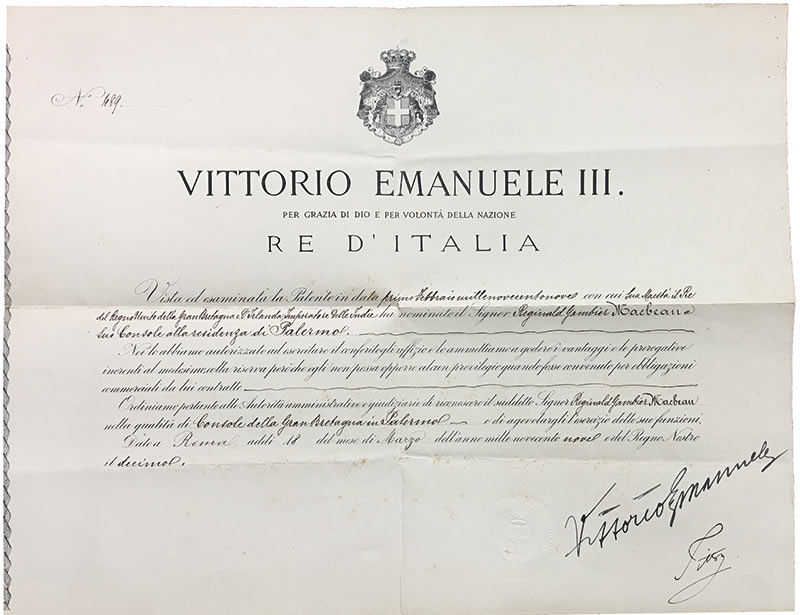 N.° 489.
VITTORIO EMANUELE III.
PER GRAZIA DI DIO E PER VOLONTÀ DELLA NAZIONE
RE D'ITALIA
Vista ed esaminata la Patente in data primo Febbraio millenovecentonove con cui Sua Maestà il Re
del Regno Unito della Gran Bretagna e d'Irlanda, Imperatore delle Indie ha nominato il Signor Reginald Gambier Macbean a
suo Console alla residenza di Palermo.
Noi lo abbiamo autorizzato ad esercitare il conferitogli uffizio e lo ammettiamo a godere i vantaggi e le prerogative
inerenti al medesimo colla riserva però che egli non possa opporre alcun privilegio quando fosse convenuto per obbligazioni
commerciali da lui contratte
Ordiniamo pertanto alle Autorità amministrative e giudiziarie di riconoscere il suddetto Signor Reginald Gambier Macbean
nella qualità di Console della Gran Bretagna in Palermo e di agevolargli l'esercizio delle sue funzioni.
Dato a Roma addì 18 del mese di Marzo dell'anno mille novecento nove e del Regno Nostro
il decimo.
Vittorio Emanuele